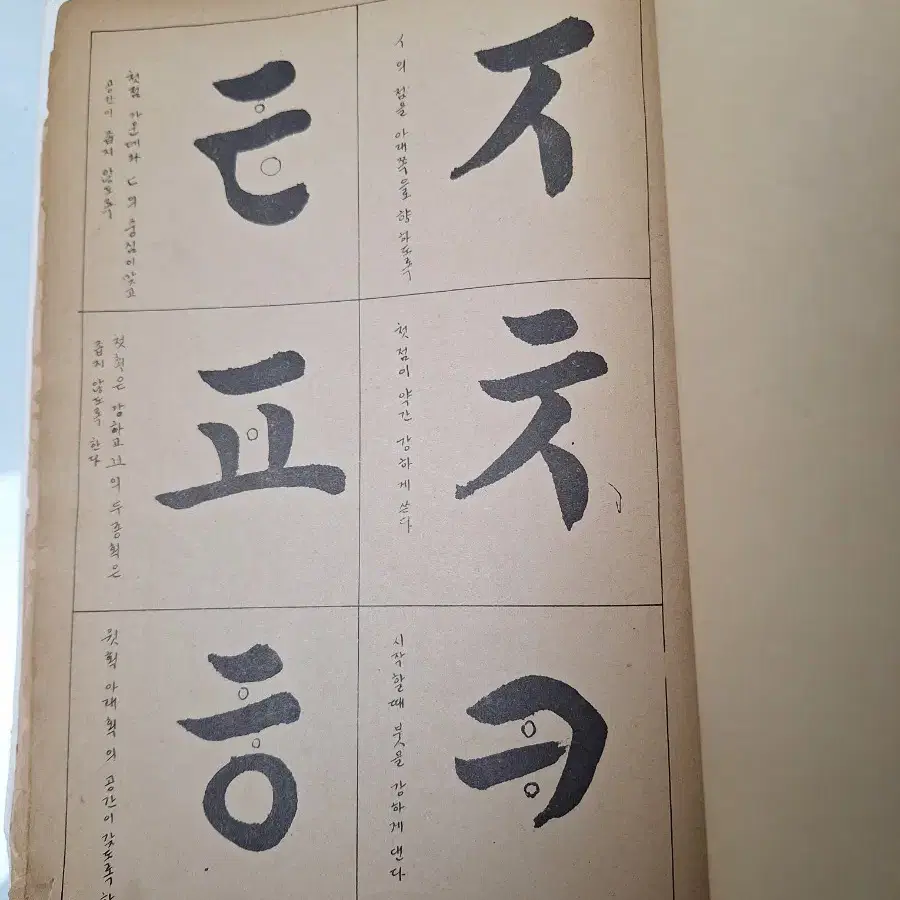 ㅈ
ㅅ의 점을 아래쪽으로 향하도록
ㅊ
첫점이 약간 강하게 쓴다
ㅋ
시작할때 붓을 강하게 댄다
ㅌ
첫점 가운데와 ㄷ의 중심이맞고
공간이 좁지 않도록
ㅍ
첫획은 강하고 ㅛ의 두종획은
좁지 않도록 한다
ㅎ
윗획 아래획의 공간이 같도록